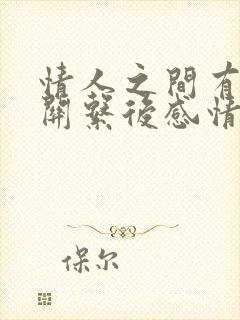 情人之間有
關繫後感情
保尔